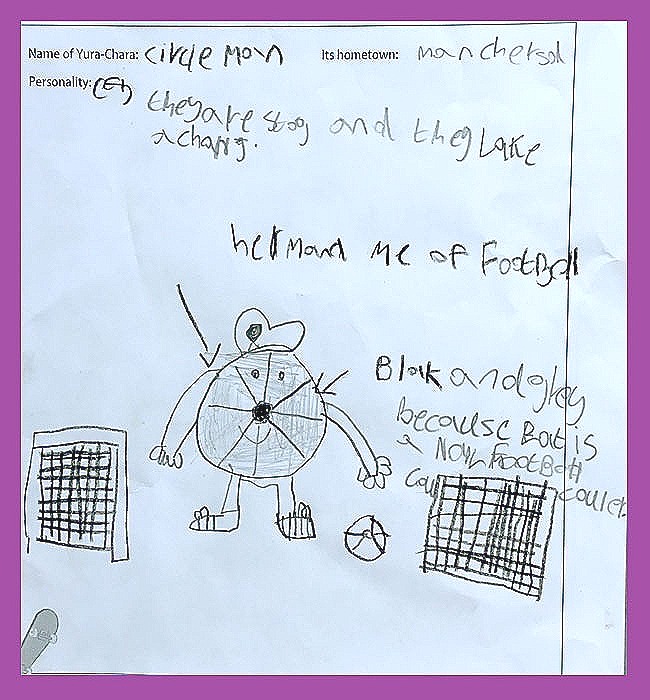 Name of Yura-Chara: Circle Man
Its hometown: mancherson
Personality:
they are stog and they Lake
a chang.
hermand me of FootBall
Blak and grey
because Bat is
a Now FootBall
couler.